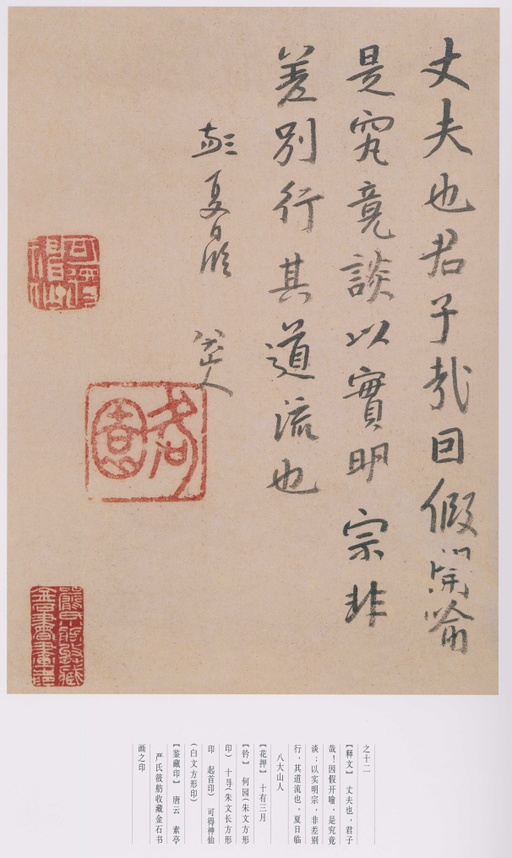 丈夫也君子哉因假開喻
是究竟談以實明宗非
差別行其道流也
夏日臨
八大山人
可得神仙
何園
嚴氏筱舫收藏
金石書畫之印
之十二
【释文】 丈夫也，君子
哉！因假开喻，是究竟
谈；以实明宗，非差别
行，其道流也，夏日临
八大山人
【花押】 十有三月
【钤】 何园(朱文方形
印) (朱文长方形
印 起首印) 可得神仙
(白文方形印)
【鉴藏印】 唐云 素亭
严氏筱舫收藏金石书
画之印